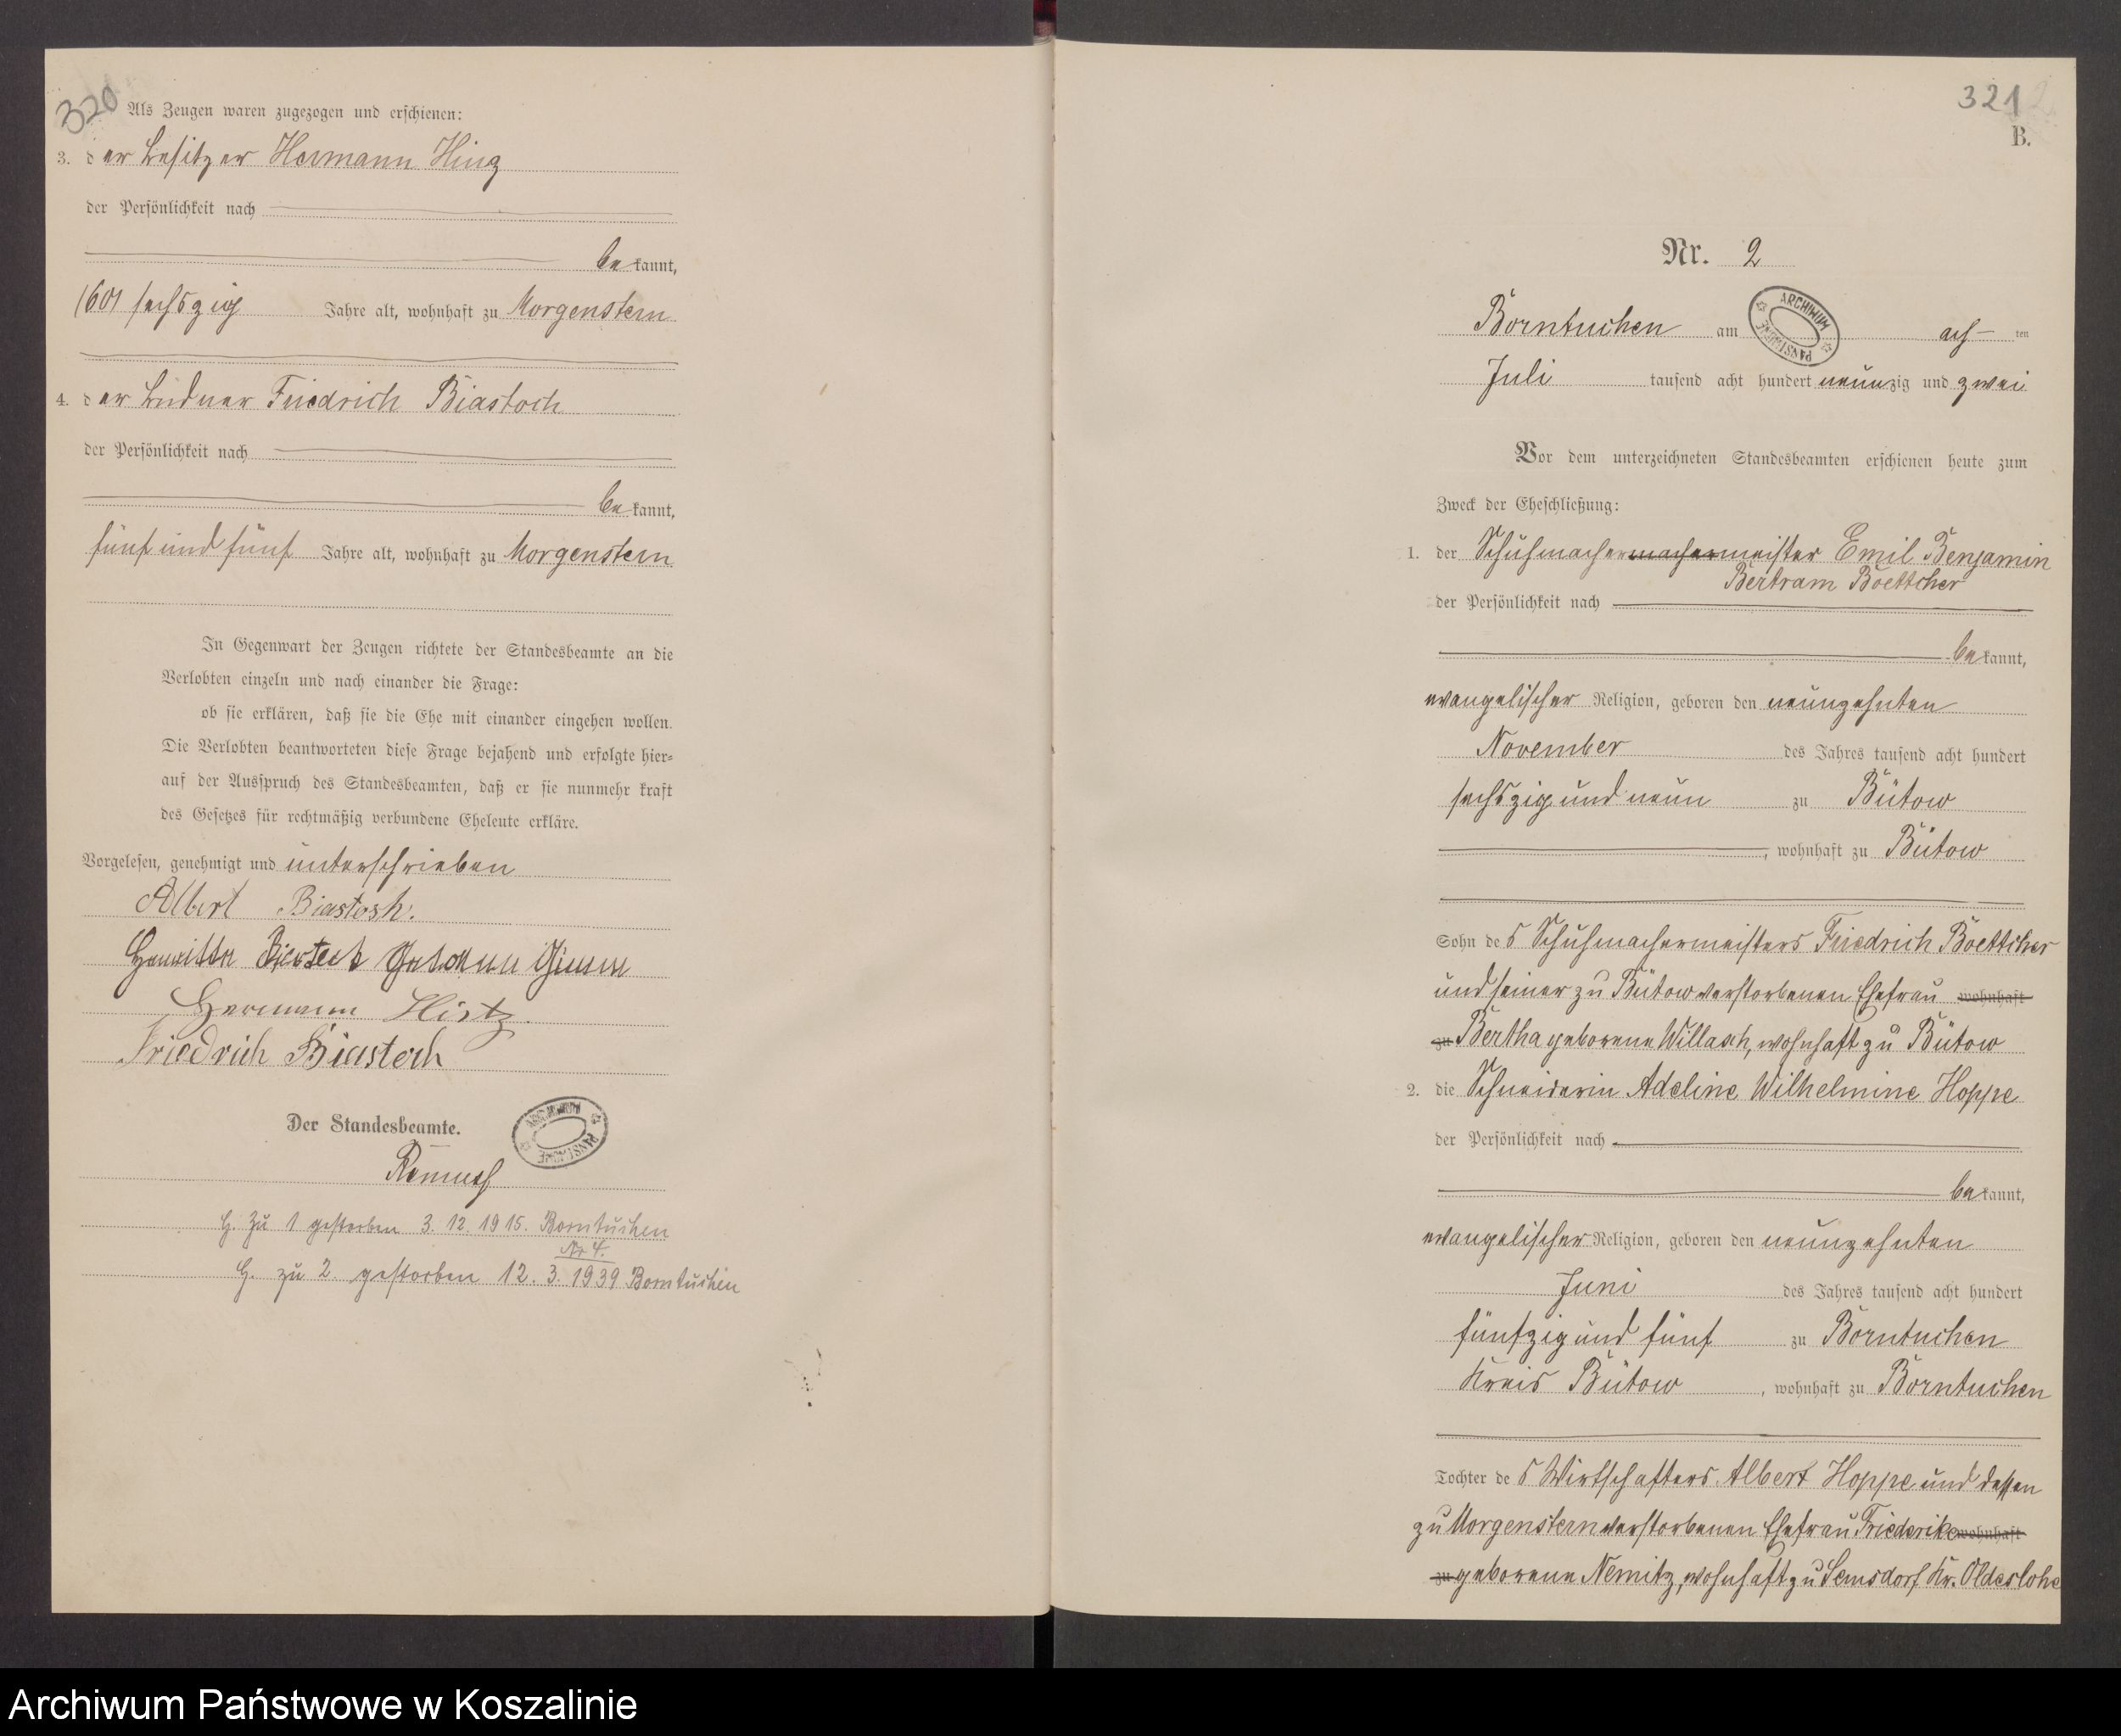 320
Als Zeugen waren zugezogen und erschienen:
3. der Besitzer Hermann Hinz
der Persönlichkeit nach
bekannt,
(60) sechszig Jahre alt, wohnhaft zu Morgenstern
4. der Büdner Friedrich Biastoch
der Persönlichkeit nach
bekannt,
fünf und fünf Jahre alt, wohnhaft zu Morgenstern
In Gegenwart der Zeugen richtete der Standesbeamte an die
Verlobten einzeln und nach einander die Frage:
ob sie erklären, daß sie die Ehe mit einander eingehen wollen.
Die Verlobten beantworteten diese Frage bejahend und erfolgte hier-
auf der Ausspruch des Standesbeamten, daß er sie nunmehr kraft
des Gesetzes für rechtmäßig verbundene Eheleute erkläre.
Vorgelesen, genehmigt und unterschrieben
Albert Biastosh.
Hermann Hintz.
Friedrich Biastoch
Der Standesbeamte.
ARCHIWUM PAŃSTWOWE
H. Zu 1 gestorben 3. 12. 1915. Borntuchen
Nr 4.
H. zu 2 gestorben 12. 3. 1939 Borntuchen
321
B.
Nr. 2
Borntuchen am ach ten
ARCHIWUM PAŃSTWOWE
Juli tausend acht hundert neunzig und zwei
Vor dem unterzeichneten Standesbeamten erschienen heute zum
Zweck der Eheschließung:
1. der Schuhmachermachermeister Emil Benjamin
Bertram Boettcher
der Persönlichkeit nach
bekannt,
evangelischer Religion, geboren den neunzehnten
November des Jahres tausend acht hundert
sechszig und neun zu Bütow
, wohnhaft zu Bütow
Sohn des Schuhmachermeisters Friedrich Boettcher
und seiner zu Bütow verstorbenen Ehefrau wohnhaft
zu Bertha geborene Willasch, wohnhaft zu Bütow
2. die Schneiderin Adeline Wilhelmine Hoppe
der Persönlichkeit nach
bekannt,
evangelischer Religion, geboren den neunzehnten
Juni des Jahres tausend acht hundert
fünfzig und fünf zu Borntuchen
Kreis Bütow, wohnhaft zu Borntuchen
Tochter des Wirtschafters Albert Hoppe und dessen
zu Morgenstern verstorbenen Ehefrau Friederike wohnhaft
zu geborene Nemitz, wohnhaft zu Kr. Oldeslohe
Archiwum Państwowe w Koszalinie